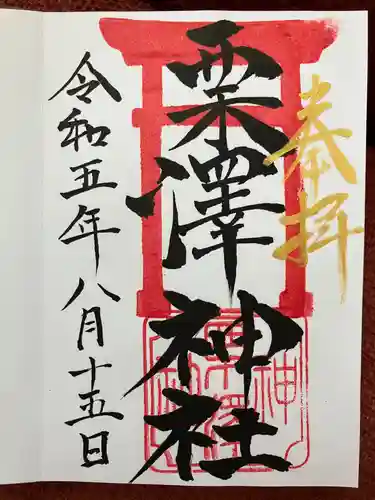 奉拝
粟澤神社
令和五年八月十五日